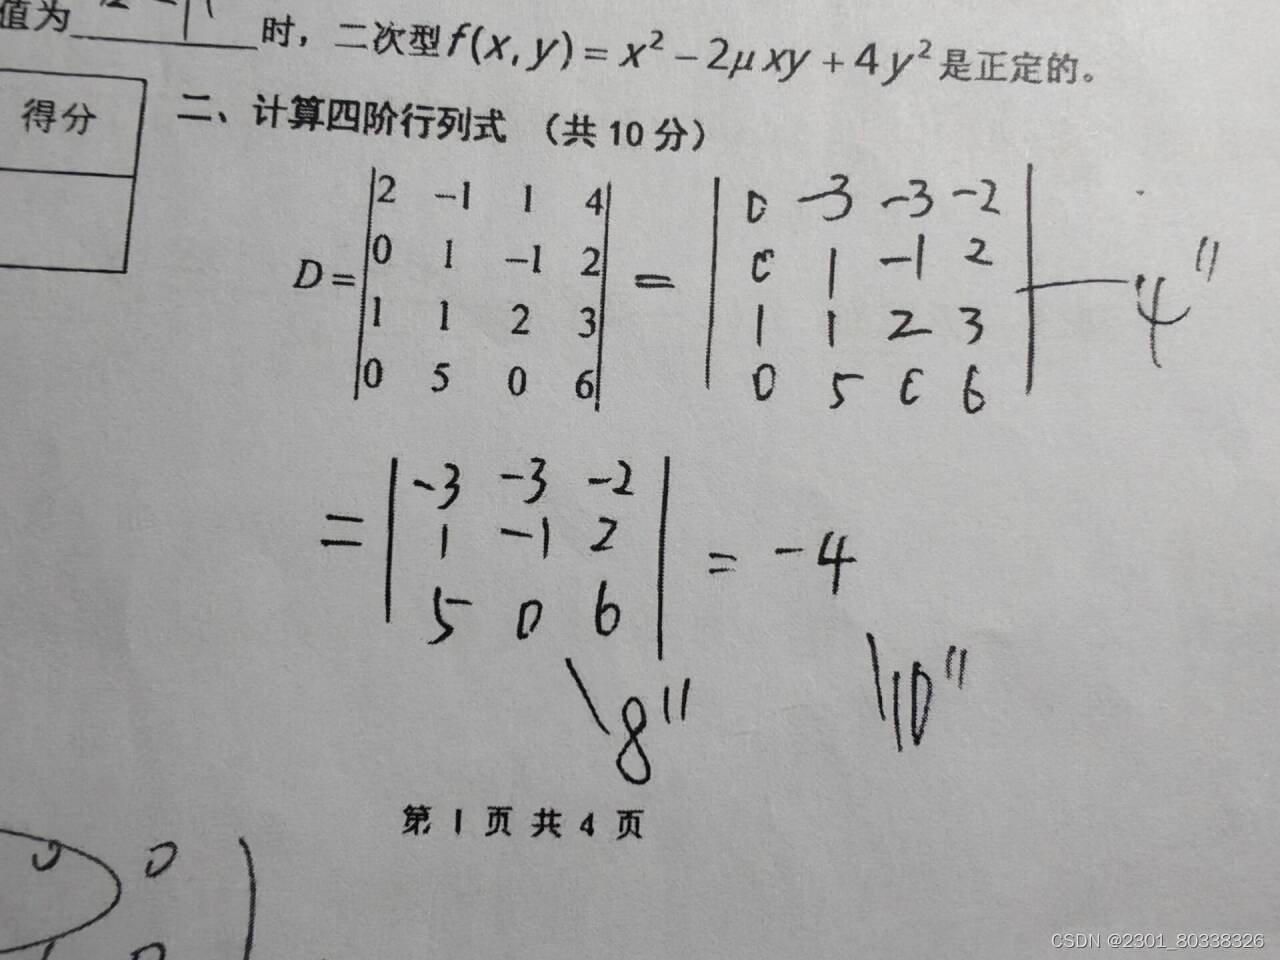 值为 时，二次型 f(x, y) = x² − 2μxy + 4y² 是正定的。
得分
二、计算四阶行列式 （共 10 分）
D = | 2 −1 1 4 | = | 0 −3 −3 −2 |
| 0 1 −1 2 | | 0 1 −1 2 | — 4"
| 1 1 2 3 | | 1 1 2 3 |
| 0 5 0 6 | | 0 5 0 6 |
= | −3 −3 −2 | = −4
| 1 −1 2 |
| 5 0 6 |
8" 10"
第 1 页 共 4 页
0 0
CSDN @2301_80338326